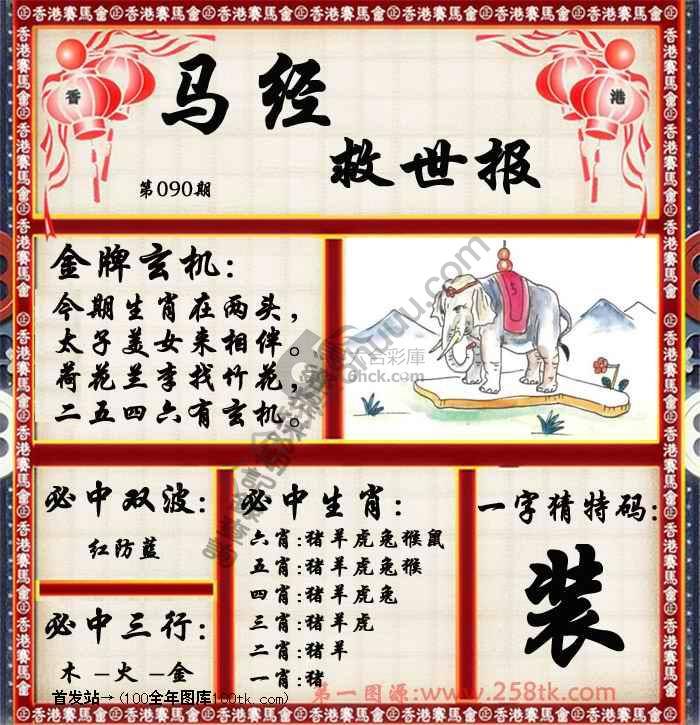 香港賽馬會
香
港
马经
救世报
第090期
金牌玄机:
今期生肖在两头,
太子美女来相伴。
荷花兰李找竹花,
二五四六有玄机。
六合彩庫
6hck.com
必中双波:
红防蓝
必中三行:
木—火—金
必中生肖:
六肖:猪羊虎兔猴鼠
五肖:猪羊虎兔猴
四肖:猪羊虎兔
三肖:猪羊虎
二肖:猪羊
一肖:猪
一字猜特码:
装
首发站→(100全年图库100tk.com)
第一图源:www.258tk.com